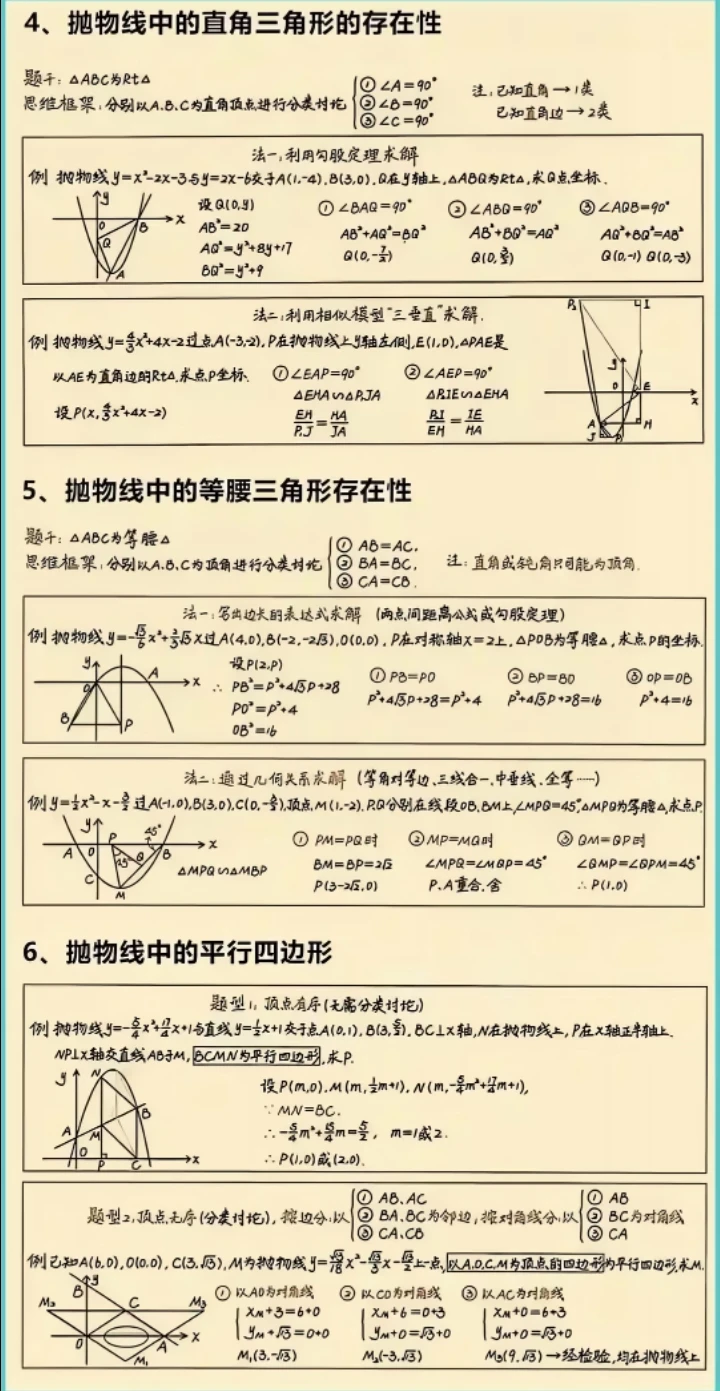 4、抛物线中的直角三角形的存在性
题干：△ABC为Rt△
思维框架：分别以A.B.C为直角顶点进行分类讨论
① ∠A=90°
② ∠B=90°
③ ∠C=90°
注：已知直角→1类
已知直角边→2类
法一：利用勾股定理求解
例 抛物线y=x²-2x-3与y=2x-6交于A(1,-4),B(3,0),Q在y轴上,△ABQ为Rt△,求Q点坐标.
y
O
B
x
Q
A
设Q(0,y)
AB²=20
AQ²=y²+8y+17
BQ²=y²+9
① ∠BAQ=90°
AB²+AQ²=BQ²
Q(0,-7/2)
② ∠ABQ=90°
AB²+BQ²=AQ²
Q(0,3/2)
③ ∠AQB=90°
AQ²+BQ²=AB²
Q(0,-1) Q(0,-3)
法二：利用相似模型“三垂直”求解.
例 抛物线y=4/3x²+4x-2过点A(-3,-2),P在抛物线上y轴左侧,E(1,0),△PAE是
以AE为直角边的Rt△,求点P坐标.
设P(x,4/3x²+4x-2)
① ∠EAP=90°
△EHA∽△P₁JA
EH/P₁J=HA/JA
② ∠AEP=90°
△P₂IE∽△EHA
P₂I/EH=IE/HA
P₂
I
y
E
x
A
H
J
P₁
5、抛物线中的等腰三角形存在性
题干：△ABC为等腰△
思维框架：分别以A.B.C为顶角进行分类讨论
① AB=AC.
② BA=BC.
③ CA=CB.
注：直角或钝角只可能为顶角.
法一：写出边长的表达式求解 (两点间距离公式或勾股定理)
例 抛物线y=-√3/6x²+2/3√3x过A(4,0),B(-2,-2√3),O(0,0),P在对称轴x=2上,△POB为等腰△,求点P的坐标.
y
O
A
x
B
P
设P(2,P)
∴ PB²=P²+4√3P+28
PO²=P²+4
OB²=16
① PB=PO
P²+4√3P+28=P²+4
② BP=BO
P²+4√3P+28=16
③ OP=OB
P²+4=16
法二：通过几何关系求解 (等角对等边、三线合一、中垂线、全等……)
例 y=½x²-x-3/2过A(-1,0),B(3,0),C(0,-3/2),顶点M(1,-2),P.Q分别在线段OB,BM上,∠MPQ=45°,△MPQ为等腰△,求点P.
y
A
O
P
45°
B
x
45°
Q
C
M
△MPQ∽△MBP
① PM=PQ时
BM=BP=2√2
P(3-2√2,0)
② MP=MQ时
∠MPQ=∠MQP=45°
P.A重合,舍
③ QM=QP时
∠QMP=∠QPM=45°
∴ P(1,0)
6、抛物线中的平行四边形
题型1，顶点有序(无需分类讨论)
例 抛物线y=-5/4x²+17/4x+1与直线y=½x+1交于点A(0,1),B(3,5/2),BC⊥x轴,N在抛物线上,P在x轴正半轴上.
NP⊥x轴交直线AB于M,BCMN为平行四边形,求P.
y
N
B
A
M
O
P
C
x
设P(m,0),M(m,½m+1),N(m,-5/4m²+17/4m+1),
∵ MN=BC.
∴ -5/4m²+15/4m=5/2, m=1或2.
∴ P(1,0)或(2,0).
题型2，顶点无序(分类讨论)，按边分：以
① AB、AC
② BA、BC为邻边，按对角线分：以
③ CA、CB
① AB
② BC为对角线
③ CA
例 已知A(6,0),O(0,0),C(3,√3),M为抛物线y=√3/18x²-√3/3x-√3/2上一点,以A,O,C,M为顶点的四边形为平行四边形,求M.
y
B
M₂
C
M₃
O
A
x
M₁
① 以AO为对角线
xM+3=6+0
yM+√3=0+0
M₁(3,-√3)
② 以CO为对角线
xM+6=0+3
yM+0=√3+0
M₂(-3,√3)
③ 以AC为对角线
xM+0=6+3
yM+0=√3+0
M₃(9,√3)→经检验,均在抛物线上